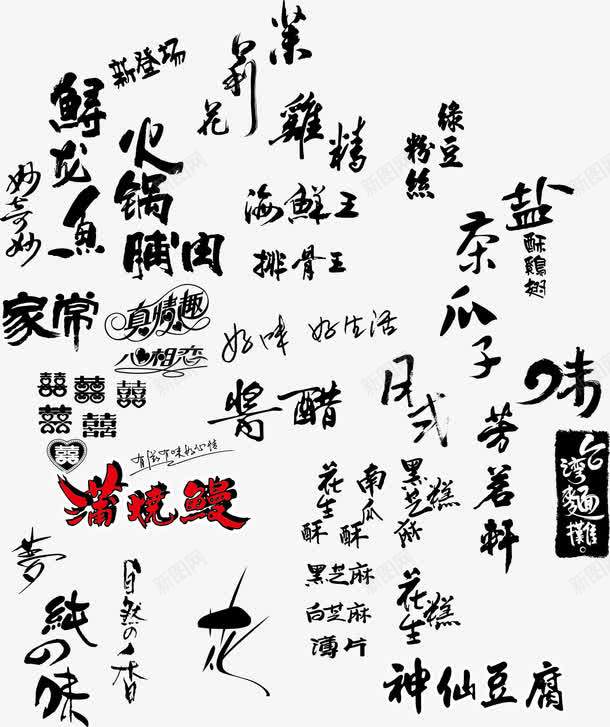 茉
莉
花
新登场
鲟龙鱼
火锅脯肉
妙奇妙
雞精
海鮮王
排骨王
綠豆
粉絲
盐
酥鷄翅
茶瓜子
家常
真情趣
心相恋
好味 好生活
囍囍囍
囍囍
囍
醬醋
日式
味
芳茗轩
台灣麵攤
有滋有味好心情
蒲燒鰻
花生酥
南瓜酥
黑芝麻糕
黑芝麻
白芝麻
薄片
花生糕
夢
純の味
自然の香
花
神仙豆腐